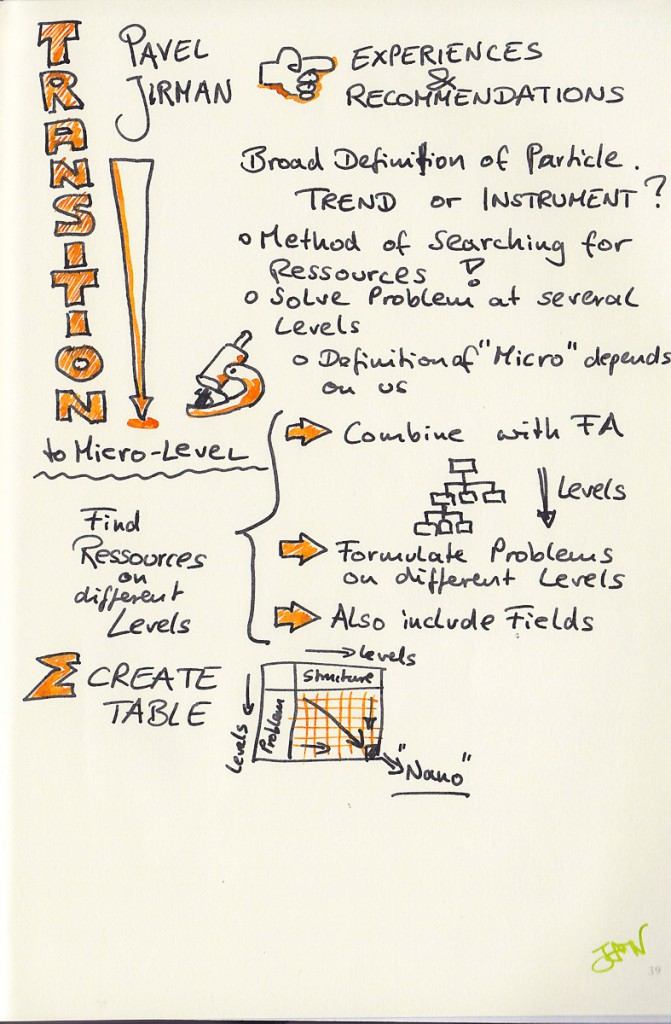 TRANSITION
to Micro-Level
PAVEL
JIRMAN
EXPERIENCES
&
RECOMMENDATIONS
Broad Definition of Particle.
TREND or INSTRUMENT?
Method of Searching for
Ressources!
Solve Problem at several
Levels
Definition of "Micro" depends
on us
Find
Ressources
on
different
Levels
Combine with FA
Levels
Formulate Problems
on different Levels
Also include Fields
Σ CREATE
TABLE
Levels
Structure
Levels
Problem
"Nano"
39